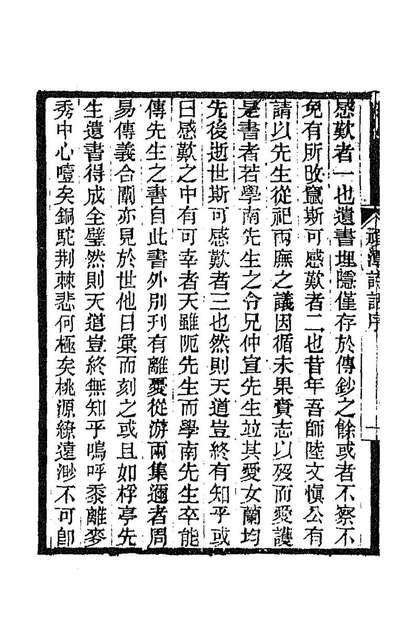 感歎者一也遺書埋隱僅存於傳鈔之餘或者不察不
免有所改竄斯可感歎者二也昔年吾師陸文愼公有
請以先生從祀兩廡之議因循未果賫志以歿而愛護
是書者若學南先生之令兄仲宣先生並其愛女蘭均
先後逝世斯可感歎者三也然則天道豈終有知乎或
曰感歎之中有可幸者天雖阨先生而學南先生卒能
傳先生之書自此書外別刊有離憂從游兩集邇者周
易傳義合闡亦見於世他日彙而刻之或且如桴亭先
生遺書得成全璧然則天道豈終無知乎嗚呼黍離麥
秀中心噎矣銅駝荆棘悲何極矣桃源繚遠渺不可卽
詩話序